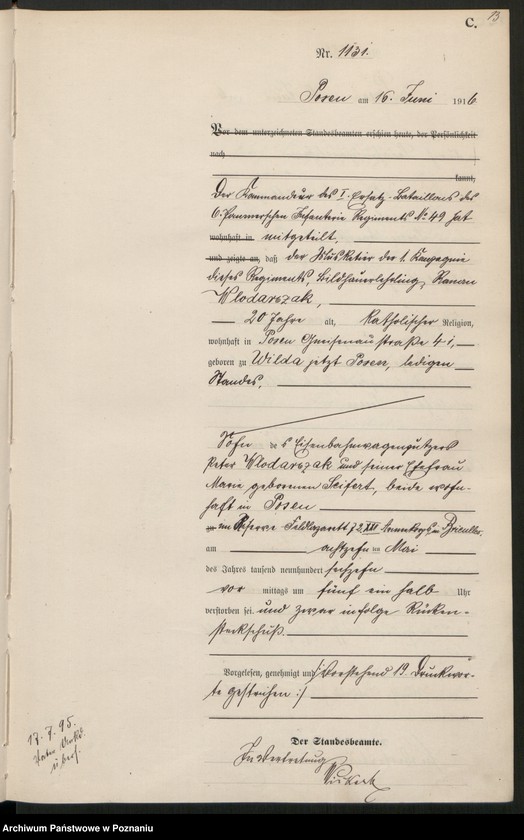 C. 13
Nr. 1131.
Posen am 16. Juni 1916
Vor dem unterzeichneten Standesbeamten erschien heute, der Persönlichkeit
nach
kannt,
Der Kommandeur des I. Ersatz-Bataillons des
6. Pommerschen Infanterie Regiments No 49 hat
wohnhaft in mitgeteilt,
und zeigte an, daß der Musketier der 1. Kompagnie
dieses Regiments, Bildhauerlehrling, Roman
Wlodarszak,
20 Jahre alt, katholischer Religion,
wohnhaft in Posen Gneisenaustraße 4 I,
geboren zu Wilda jetzt Posen, ledigen
Standes,
Sohn des Eisenbahnwagenputzers
Peter Wlodarszak und seiner Ehefrau
Marie geborenen Seifert, beide wohn-
haft in Posen
im Reserve Feldlazarett 72 XXII Armeekorps in Brieulles
am achtzehnten Mai
des Jahres tausend neunhundert sechzehn
vor mittags um fünf ein halb Uhr
verstorben sei und zwar infolge Rücken-
steckschuß.
Vorgelesen, genehmigt und /: Vorstehend 19 Druckwor-
te gestrichen :/
Der Standesbeamte.
In Vertretung
17. 7. 95.
Archiwum Państwowe w Poznaniu